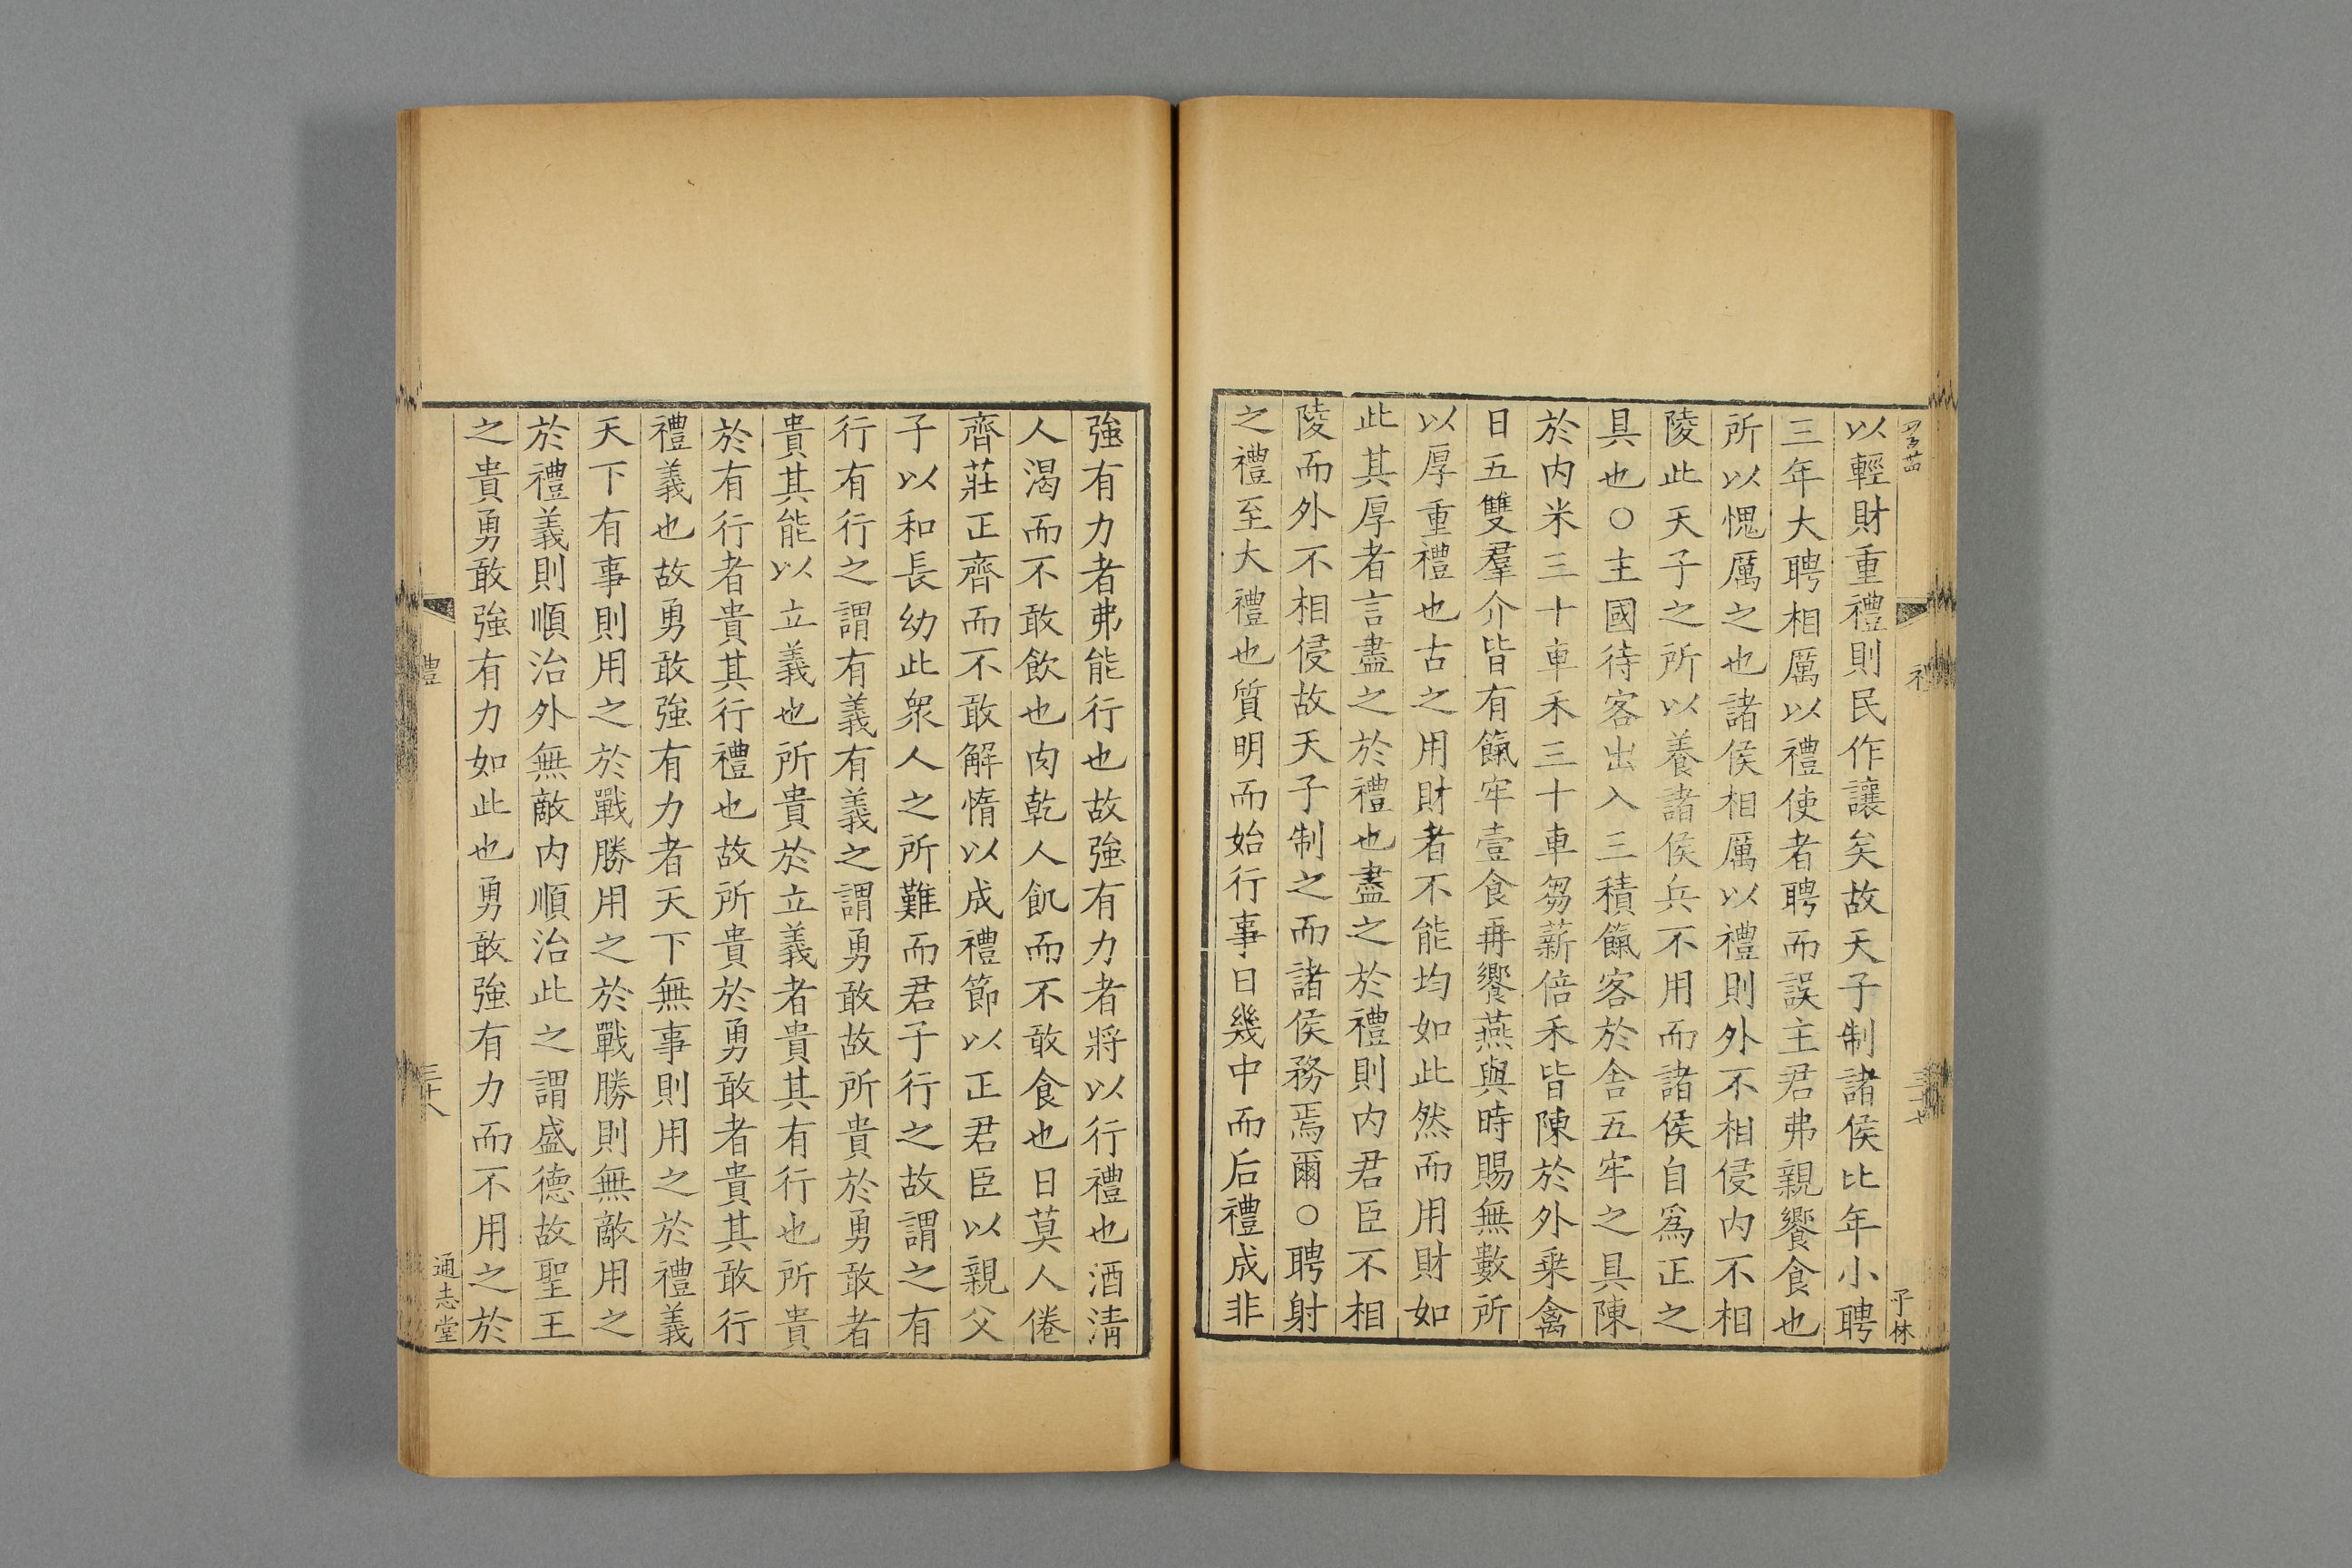 以輕財重禮則民作讓矣故天子制諸侯比年小聘
三年大聘相厲以禮使者聘而誤主君弗親饗食也
所以愧厲之也諸侯相厲以禮則外不相侵内不相
陵此天子之所以養諸侯兵不用而諸侯自爲正之
具也○主國待客出入三積餼客於舍五牢之具陳
於内米三十車禾三十車芻薪倍禾皆陳於外乗禽
日五雙羣介皆有餼牢壹食再饗燕與時賜無數所
以厚重禮也古之用財者不能均如此然而用財如
此其厚者言盡之於禮也盡之於禮則内君臣不相
陵而外不相侵故天子制之而諸侯務焉爾○聘射
之禮至大禮也質明而始行事日幾中而后禮成非
強有力者弗能行也故強有力者將以行禮也酒清
人渴而不敢飲也肉乾人飢而不敢食也日莫人倦
齊莊正齊而不敢解惰以成禮節以正君臣以親父
子以和長幼此衆人之所難而君子行之故謂之有
行有行之謂有義有義之謂勇敢故所貴於勇敢者
貴其能以立義也所貴於立義者貴其有行也所貴
於有行者貴其行禮也故所貴於勇敢者貴其敢行
禮義也故勇敢強有力者天下無事則用之於禮義
天下有事則用之於戰勝用之於戰勝則無敵用之
於禮義則順治外無敵内順治此之謂盛德故聖王
之貴勇敢強有力如此也勇敢強有力而不用之於
禮
三十八
通志堂